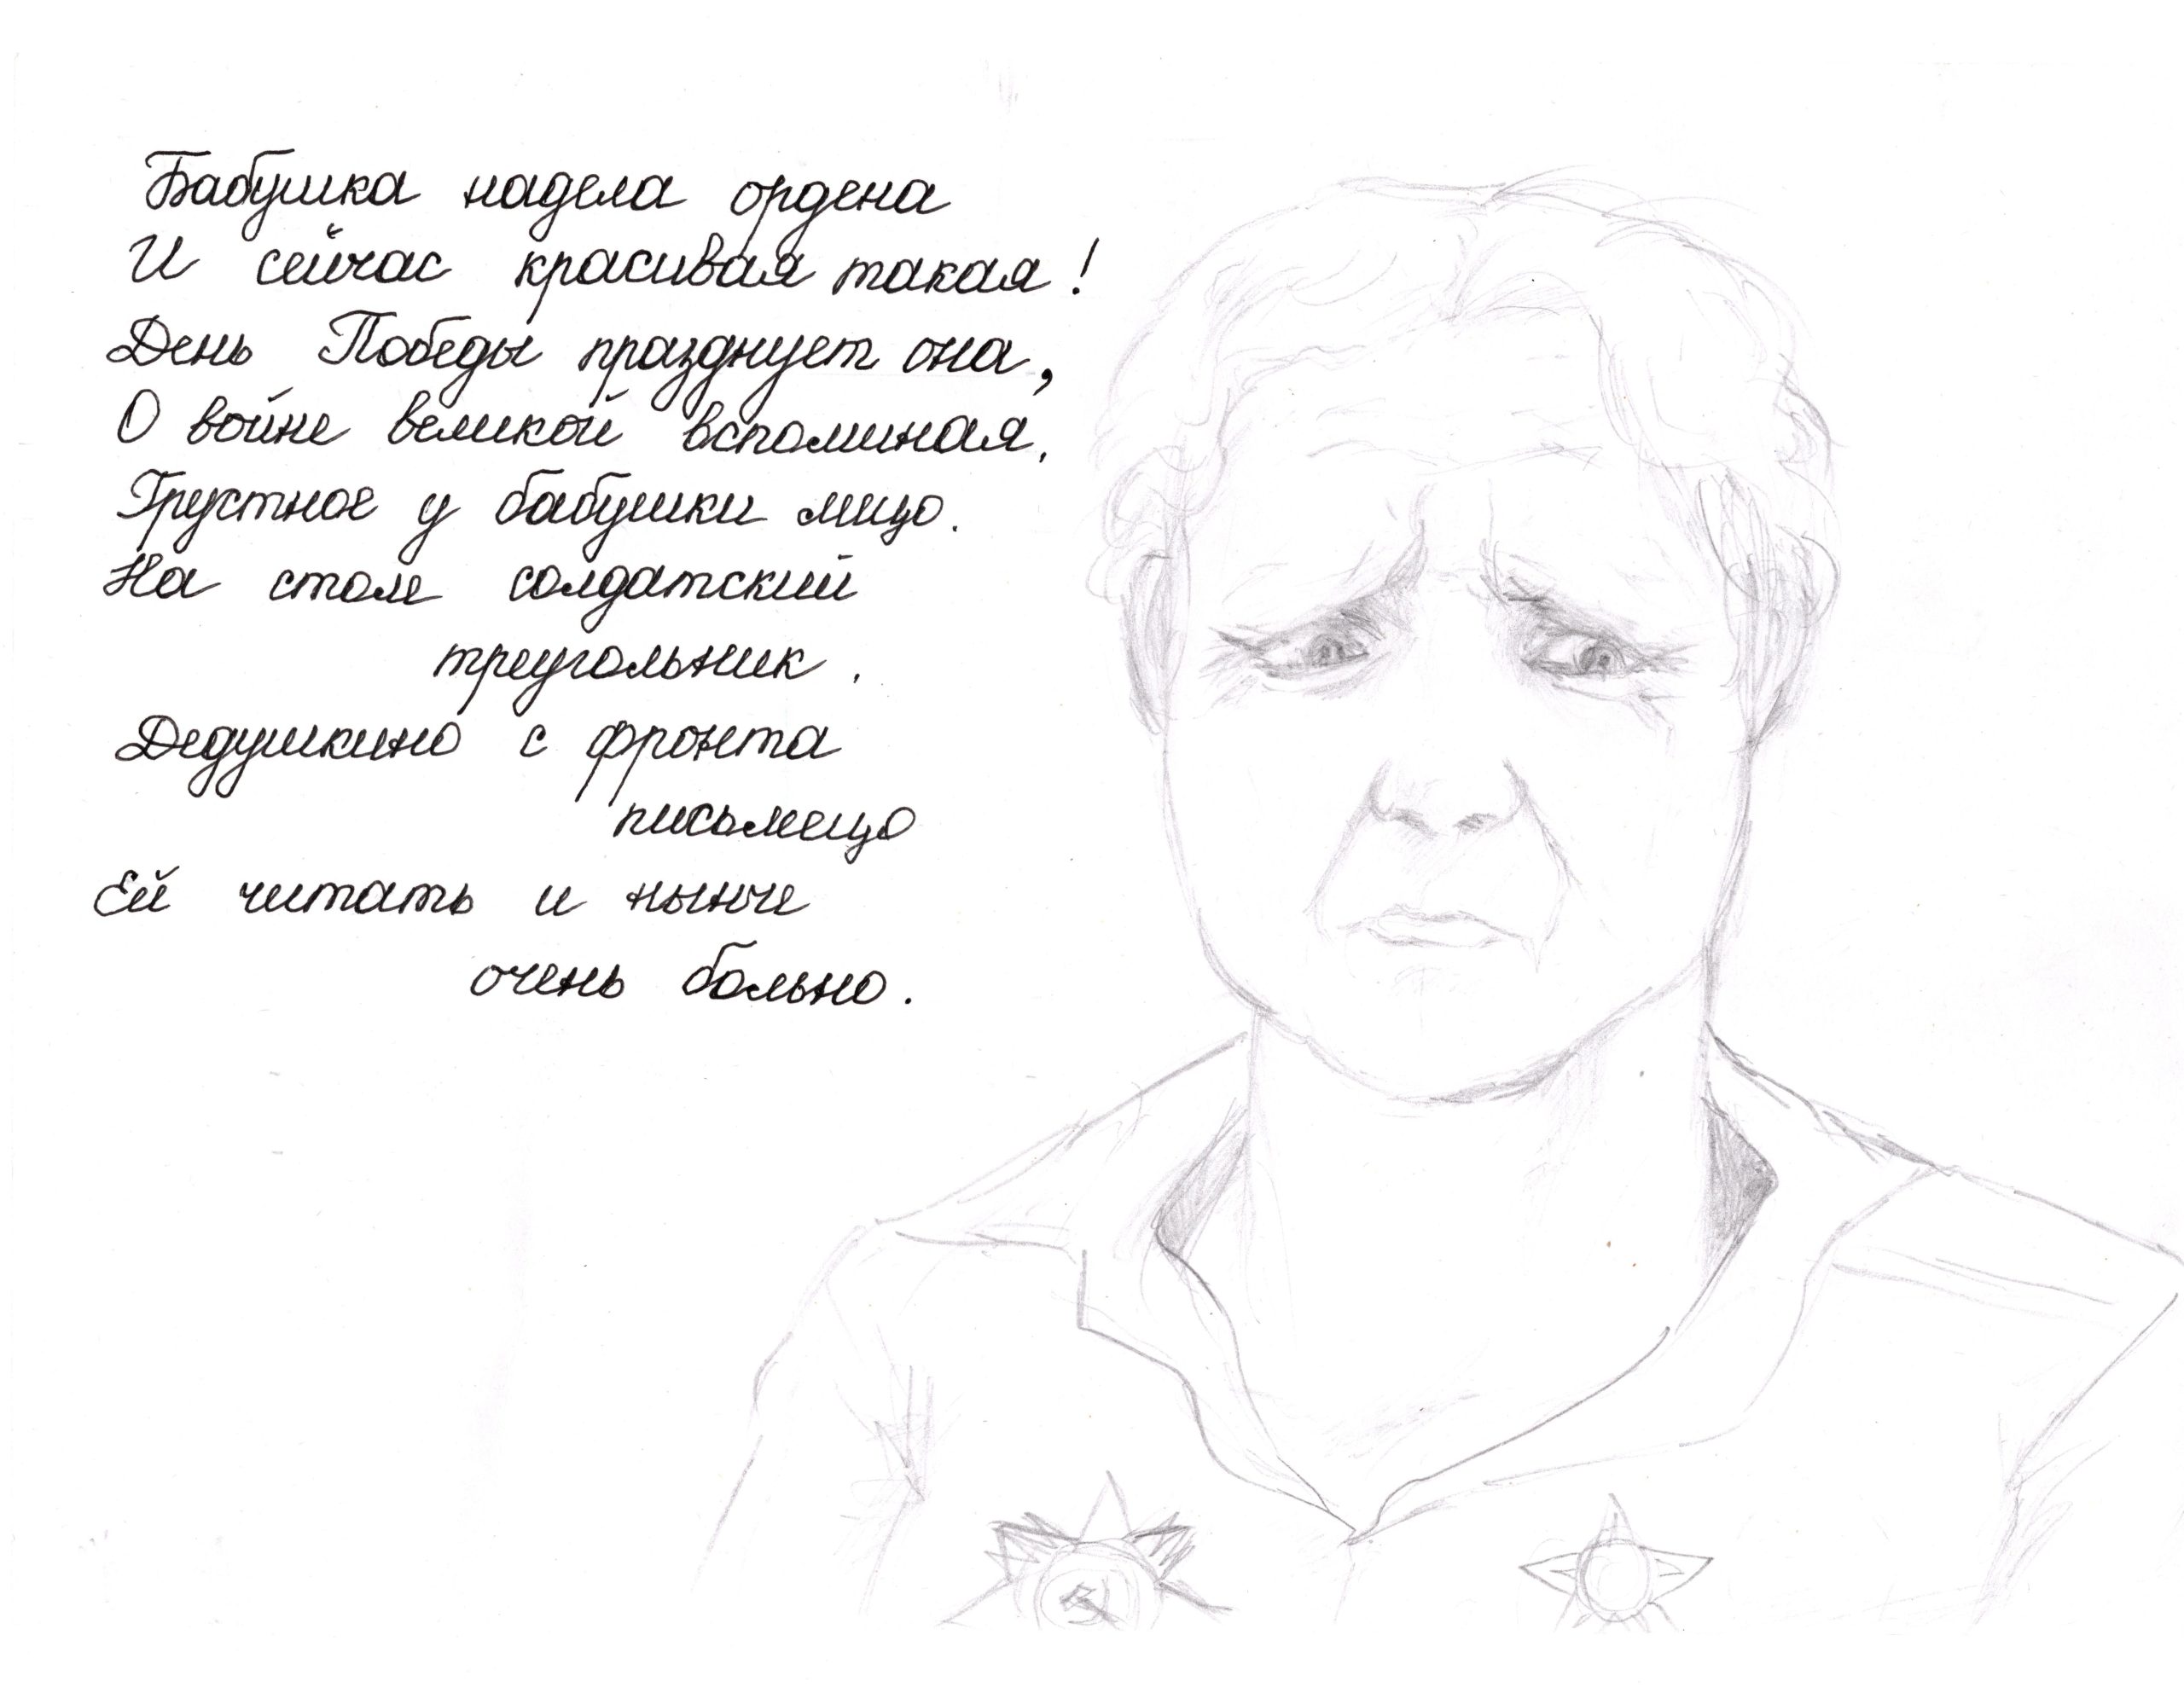 Бабушка надела ордена
И сейчас красивая такая!
День Победы празднует она,
О войне великой вспоминая.
Грустное у бабушки лицо.
На столе солдатский
треугольник.
Дедушкино с фронта
письмецо
Ей читать и нынче
очень больно.